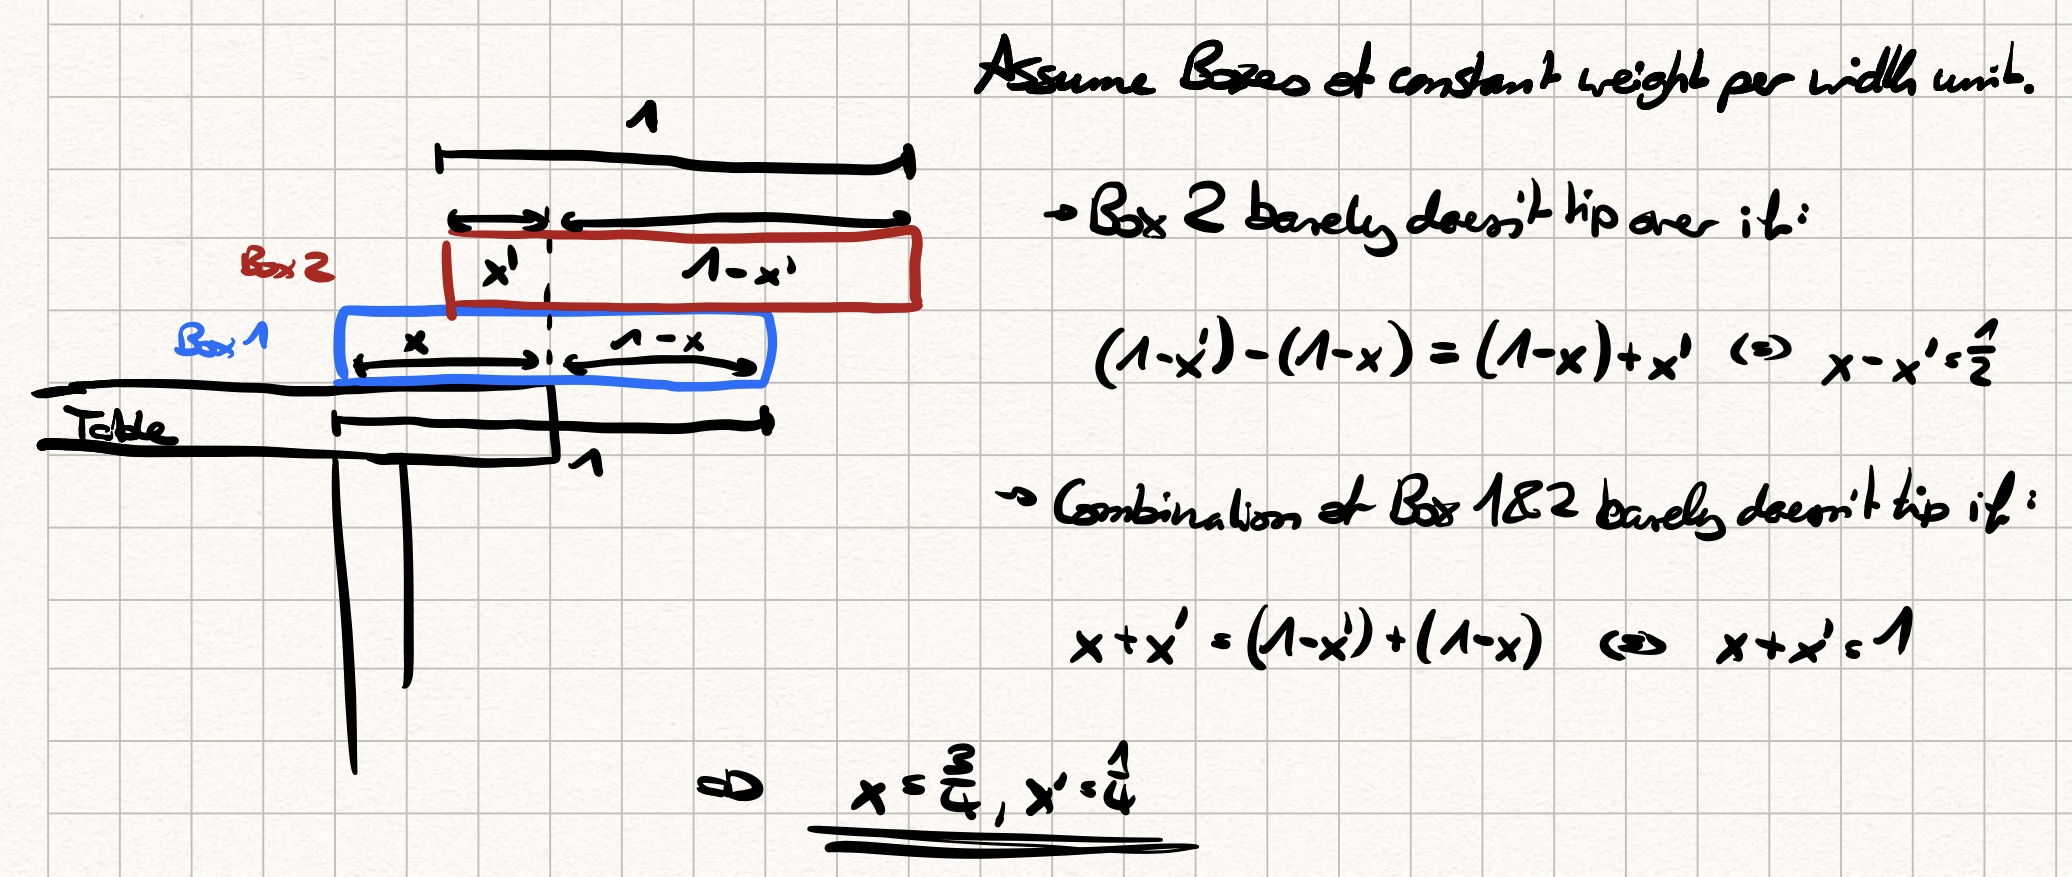 Assume Boxes of constant weight per width unit.
1
→ Box 2 barely doesn't tip over if:
Box 2
x'
1-x'
Box 1
x
1-x
(1-x')-(1-x)=(1-x)+x' <=> x-x'=1/2
Table
1
→ Combination of Box 1&2 barely doesn't tip if:
x+x'=(1-x')+(1-x) <=> x+x'=1
=> x=3/4, x'=1/4